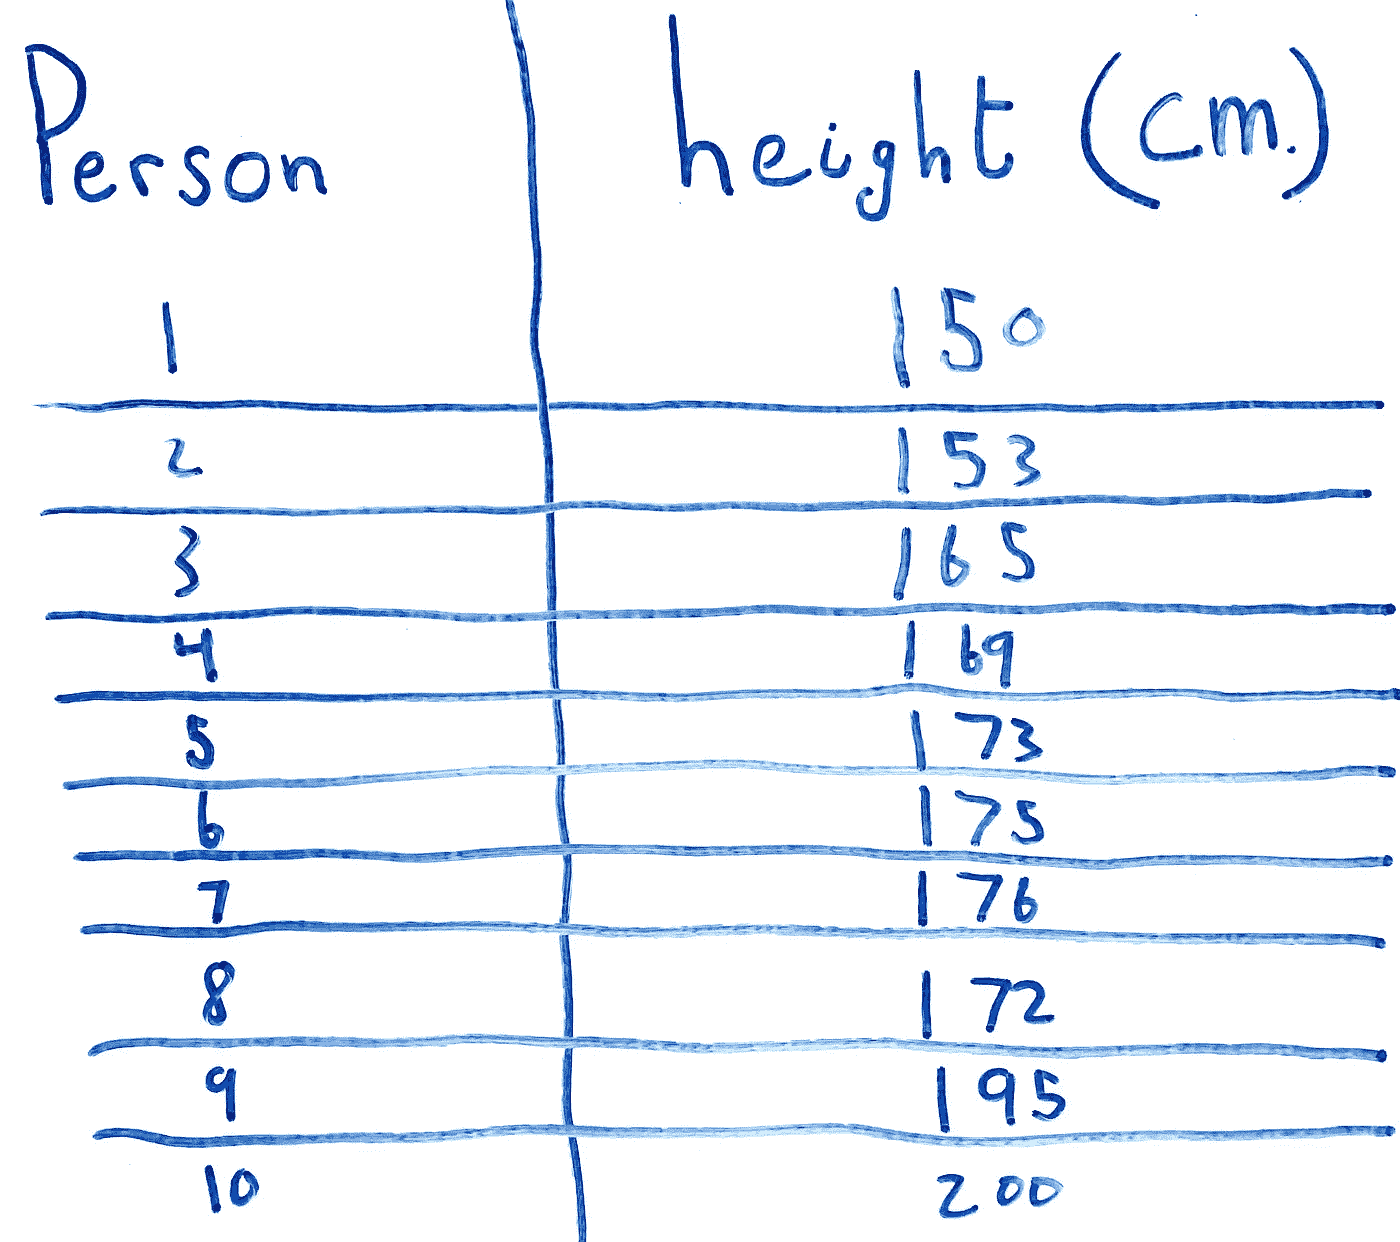 Person height (cm.)
1 150
2 153
3 165
4 169
5 173
6 175
7 176
8 172
9 195
10 200